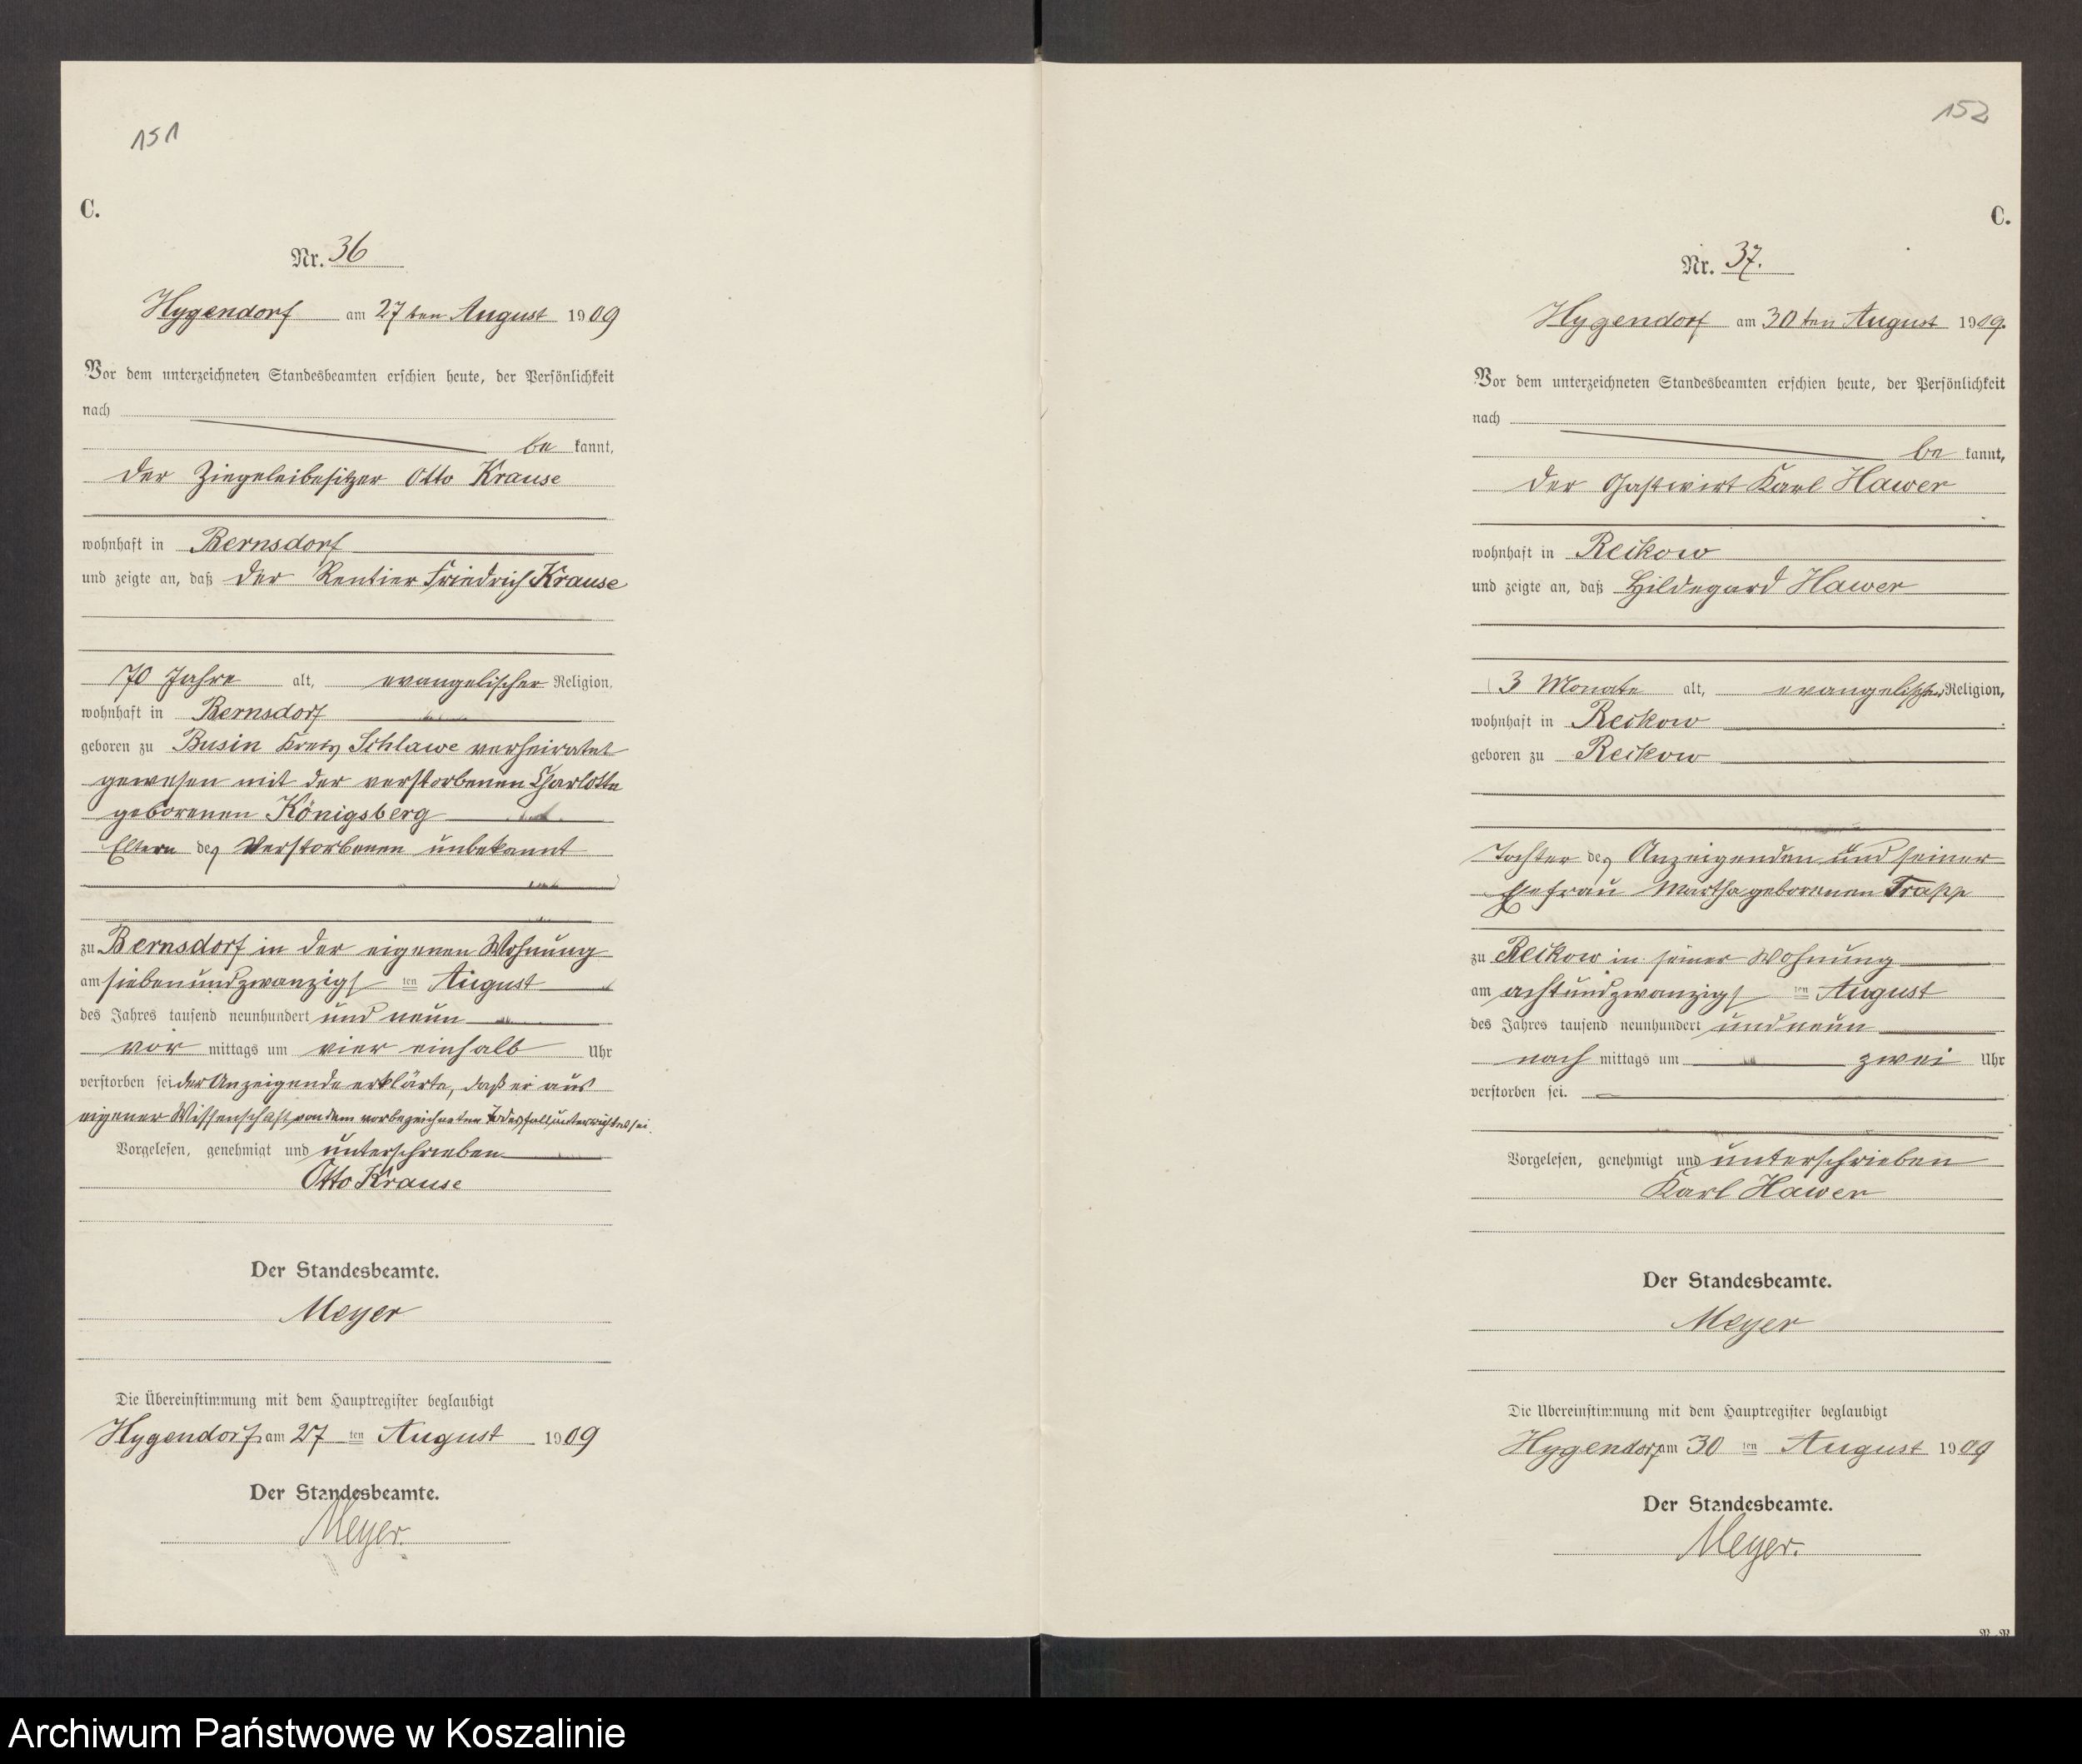 151
C.
Nr. 36
Hygendorf am 27ten August 1909
Vor dem unterzeichneten Standesbeamten erschien heute, der Persönlichkeit
nach
be kannt,
der Ziegeleibesitzer Otto Krause
wohnhaft in Bernsdorf
und zeigte an, daß der Rentier Friedrich Krause
70 Jahre alt, evangelischer Religion,
wohnhaft in Bernsdorf
geboren zu Busin Kreis Schlawe verheiratet
gewesen mit der verstorbenen Charlotte
geborenen Königsberg
Eltern des Verstorbenen unbekannt
zu Bernsdorf in der eigenen Wohnung
am siebenundzwanzigsten August
des Jahres tausend neunhundert und neun
vor mittags um vier einhalb Uhr
verstorben sei. der Anzeigende erklärte, daß er aus
eigener Wissenschaft von dem vorbezeichneten Todesfall unterrichtet sei.
Vorgelesen, genehmigt und unterschrieben
Otto Krause
Der Standesbeamte.
Meyer
Die Übereinstimmung mit dem Hauptregister beglaubigt
Hygendorf am 27 ten August 1909
Der Standesbeamte.
Meyer.
152
C.
Nr. 37.
Hygendorf am 30ten August 1909.
Vor dem unterzeichneten Standesbeamten erschien heute, der Persönlichkeit
nach
be kannt,
der Gastwirt Karl Hawer
wohnhaft in Reikow
und zeigte an, daß Hildegard Hawer
3 Monate alt, evangelischer Religion,
wohnhaft in Reikow
geboren zu Reikow
Tochter des Anzeigenden und seiner
Ehefrau Martha geborenen Trapp
zu Reikow in seiner Wohnung
am achtundzwanzigsten August
des Jahres tausend neunhundert und neun
nach mittags um zwei Uhr
verstorben sei.
Vorgelesen, genehmigt und unterschrieben
Karl Hawer
Der Standesbeamte.
Meyer
Die Übereinstimmung mit dem Hauptregister beglaubigt
Hygendorf am 30 ten August 1909
Der Standesbeamte.
Meyer.
Archiwum Państwowe w Koszalinie